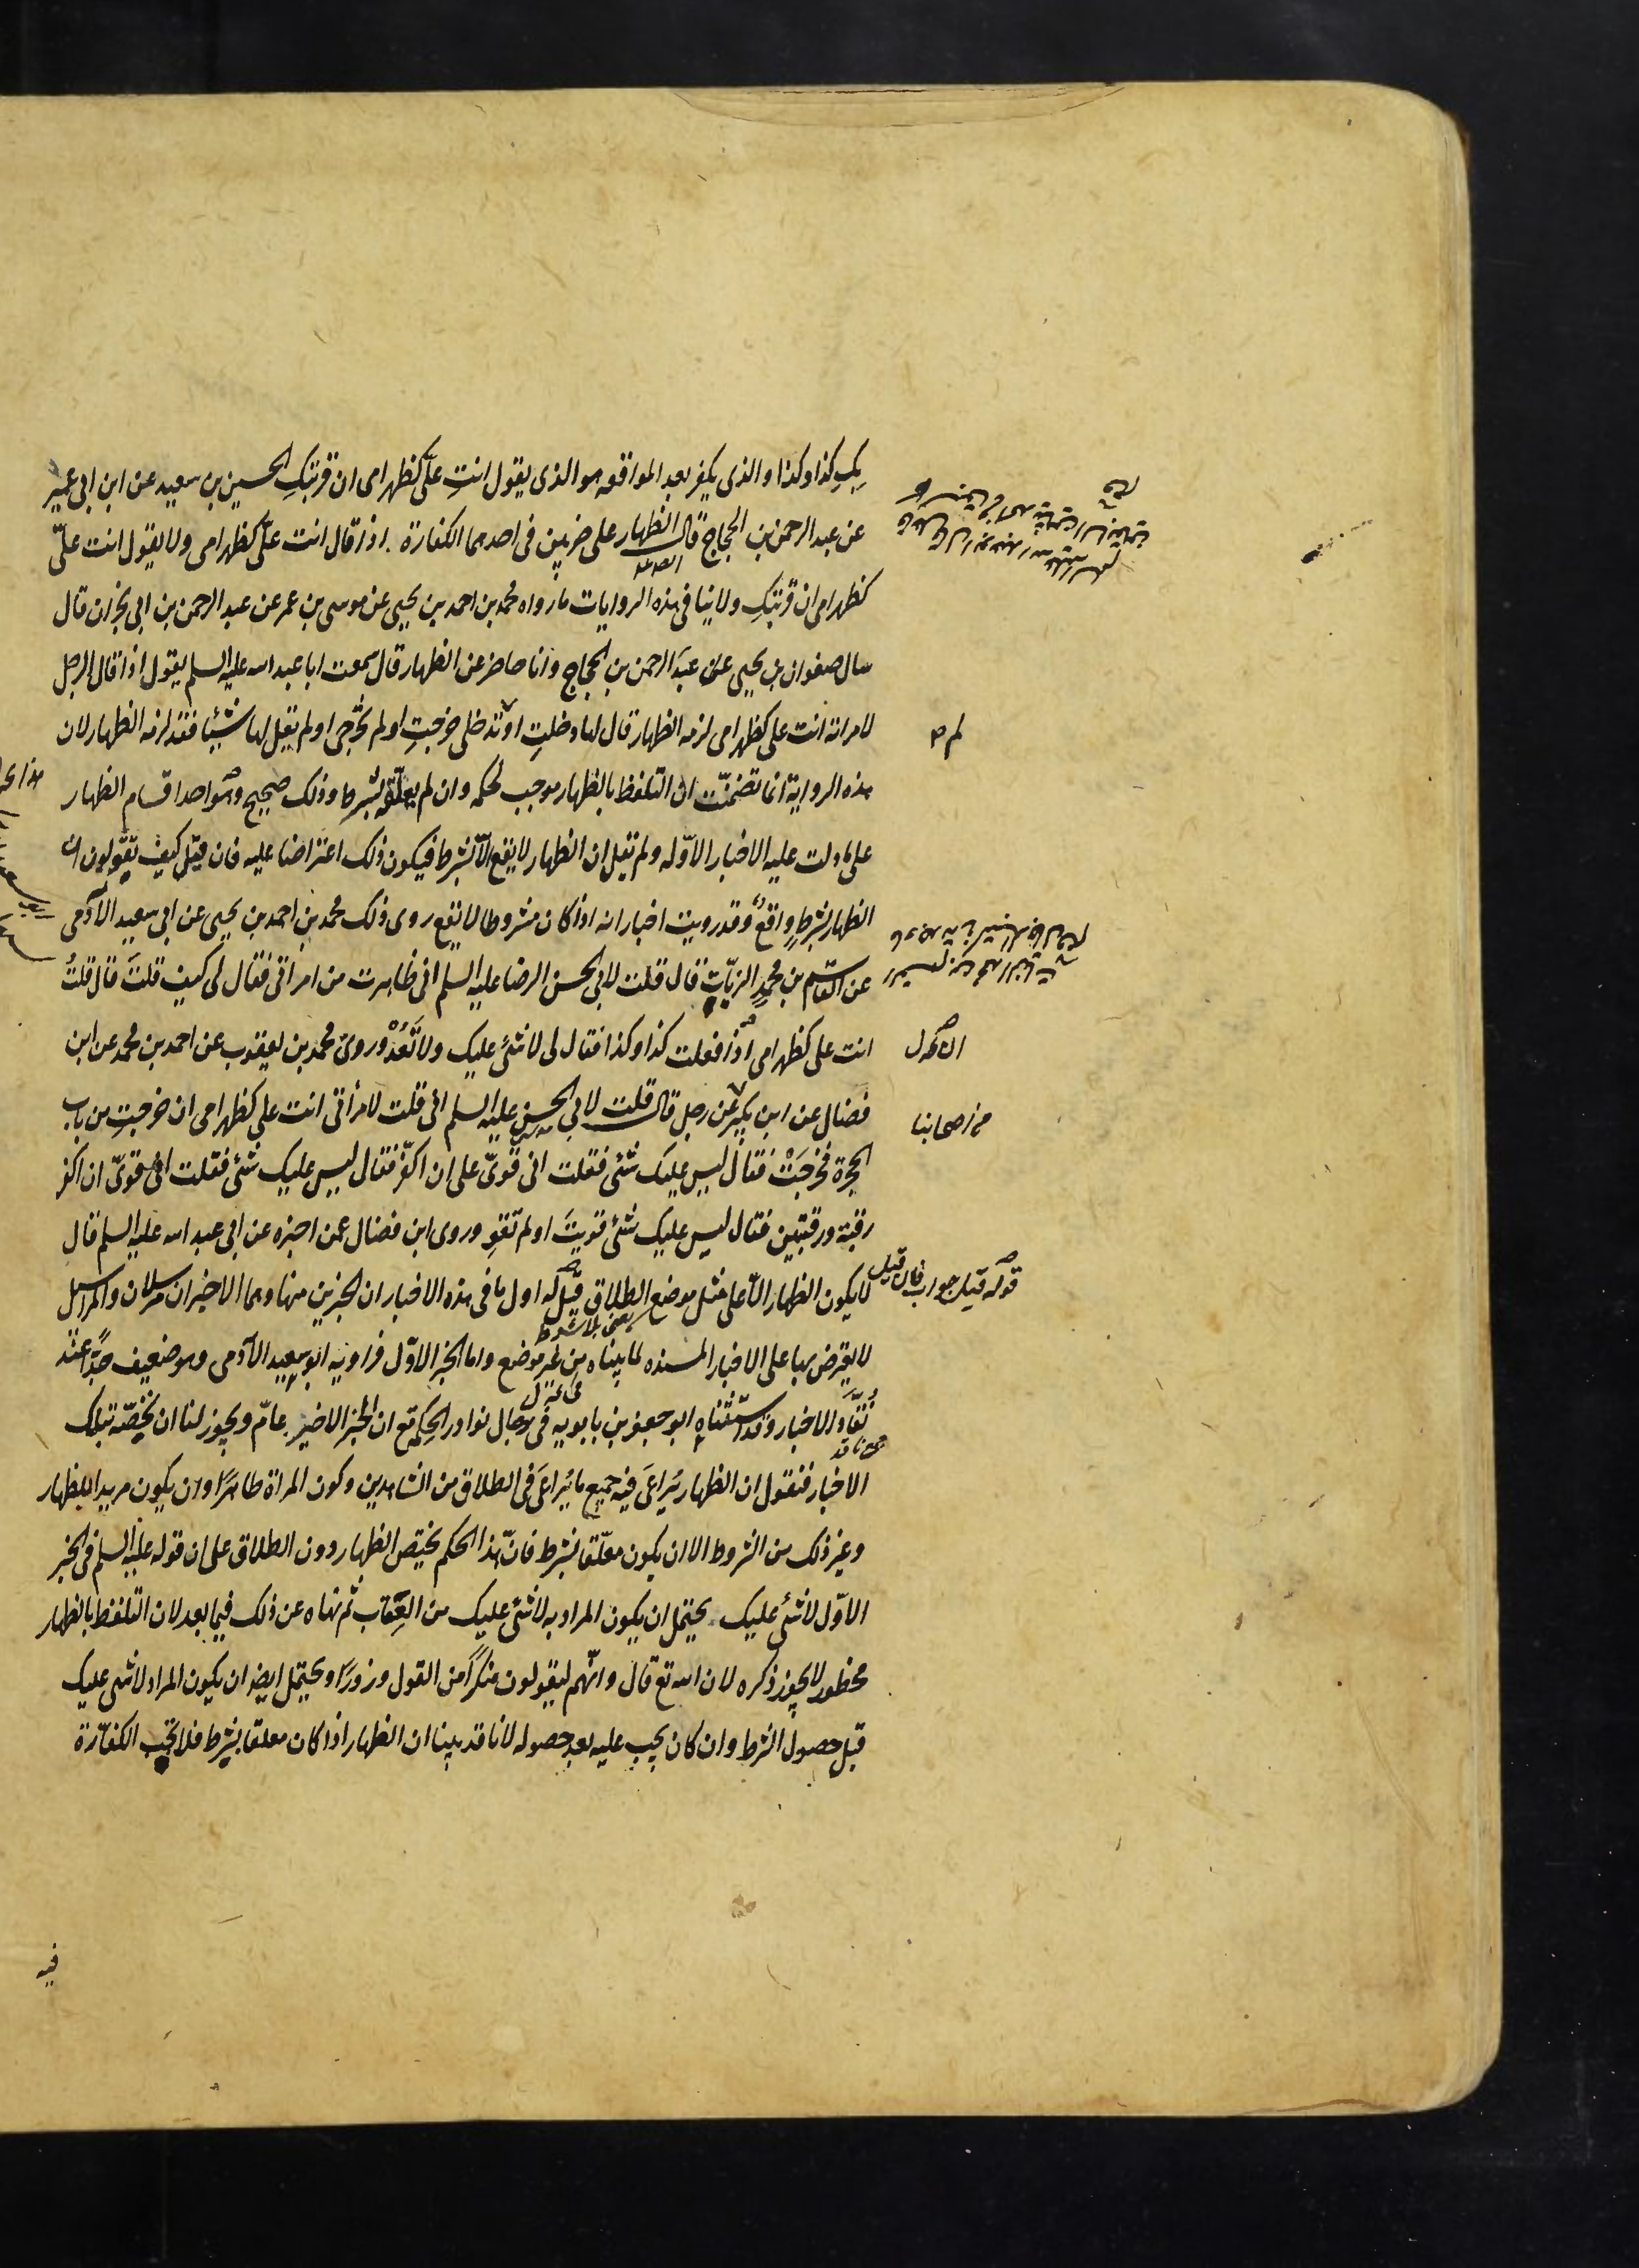 بكِ كذا وكذا والذى يكفر بعد المواقعه هو الذى يقول انتِ علىّ كظهر امى ان قربتكِ الحسين بن سعيد عن ابن ابى عمير
عن عبد الرحمن بن الحجاج قال الظهار على ضربين فى احدهما الكفارة اذا قال انت علىّ كظهر امى ولا يقول انت علىّ
كظهر امى ان قربتكِ ولا ينافى هذه الروايات ما رواه محمد بن احمد بن يحيى عن موسى بن عمر عن عبد الرحمن بن ابى نجران قال
سال صفوان بن يحيى عن عبد الرحمن بن الحجاج وانا حاضر عن الظهار قال سمعت ابا عبد الله عليه السلم يقول اذا قال الرجل
لامراته انت على كظهر امى لزمه الظهار قال لها دخلتِ او لم تدخلى خرجتِ او لم تخرجى او لم يقل لها شيئا فقد لزمه الظهار لان
لم ص
هذه الرواية انما تضمنت ان التلفظ بالظهار موجب لحكمه وان لم يعلّقه بشرط وذلك صحيح وهو احد اقسام الظهار
على ما دلت عليه الاخبار الاوّله ولم تقل ان الظهار لا يقع الاّ بشرط فيكون ذلك اعتراضا عليه فان قيل كيف تقولون ان
الظهار بشرطٍ واقعٌ وقد رويت اخبار انه اذا كان مشروطا لا يقع روى ذلك محمد بن احمد بن يحيى عن ابى سعيد الآدمى
عن القاسم بن محمدٍ الزيّات قال قلت لابى الحسن الرضا عليه السلم انى ظاهرت من امراتى فقال لى كيف قلتَ قال قلتُ
انت على كظهر امى اذا فعلت كذا وكذا فقال لى لا شئ عليك ولا تَعُدْ وروى محمد بن يعقوب عن احمد بن محمد عن ابن
فضال عن ابن بكير عن رجل قال قلت لابى الحسن عليه السلم انى قلت لامرأتى انت على كظهر امى ان خرجتِ من باب
من اصحابنا
الحجرة فخرجَتْ فقال ليس عليك شئ فقلت انى قوىّ على ان اكفّر فقال ليس عليك شئ فقلت انى قوىّ ان اكفر
رقبة ورقبتين فقال ليس عليك شئ قويتَ او لم تقوِ وروى ابن فضال عمن اخبره عن ابى عبد الله عليه السلم قال
لا يكون الظهار الاّ على مثل موضع الطلاق قيل له اول ما فى هذه الاخبار ان الخبرين منها وهما الاخيران مرسلان والمراسيل
قوله قيل جواب فان قيل
لا يعترض بها على الاخبار المسنده لما بيناه من غير موضع واما الخبر الاوّل فراويه ابو سعيد الآدمى وهو ضعيف جدّا عند
نُقّاد الاخبار وقد استثناه ابو جعفر بن بابويه فى رجال نوادر الحكمة مع ان الخبر الاخير عامّ ويجوز لنا ان نخصّه بتلك
الاخبار فنقول ان الظهار يُراعَى فيه جميع ما يُراعَى فى الطلاق من الشاهدين وكون المراة طاهرًا وان يكون مريدا للظهار
وغير ذلك من الشروط الا ان يكون معلّقا بشرط فانّ هذا الحكم يختص الظهار دون الطلاق على ان قوله عليه السلم فى الخبر
الاوّل لا شئ عليك يحتمل ان يكون المراد به لا شئ عليك من العِقاب ثم نهاه عن ذلك فيما بعد لان التلفظ بالظهار
محظور لا يجوز ذكره لان الله تع قال وانّهم ليقولون منكرًا من القول وزورًا ويحتمل ايضا ان يكون المراد لا شئ عليك
قبل حصول الشرط وان كان يجب عليه بعد حصوله لانا قد بينا ان الظهار اذا كان معلقا بشرط فلا تجب الكفّارة
فيه